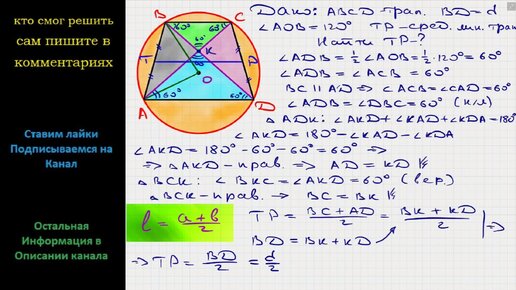 кто смог решить
сам пишите в
комментариях
Ставим лайки
Подписываемся на
Канал
Остальная
Информация в
Описании канала
B
C
60°
60°
K
T
P
60°
O
A
60°
60°
D
Дано: ABCD-трап. BD=d
∠AOB=120° TP-сред. лин. трап.
Найти TP-?
∠ADB=½∠AOB=½·120°=60°
∠ADB=∠ACB=60°
BC∥AD ⇒ ∠ACB=∠CAD=60°
∠ADB=∠DBC=60° (н/л)
△ADK: ∠AKD+∠KAD+∠KDA=180°
∠AKD=180°-∠KAD-∠KDA
∠AKD=180°-60°-60°=60° ⇒
⇒ △AKD-прав. ⇒ AD=KD
△BCK: ∠BKC=∠AKD=60° (вер.)
△BCK-прав. ⇒ BC=BK
l=(a+b)/2
TP=(BC+AD)/2=(BK+KD)/2 ⇒
BD=BK+KD
⇒ TP=BD/2=d/2